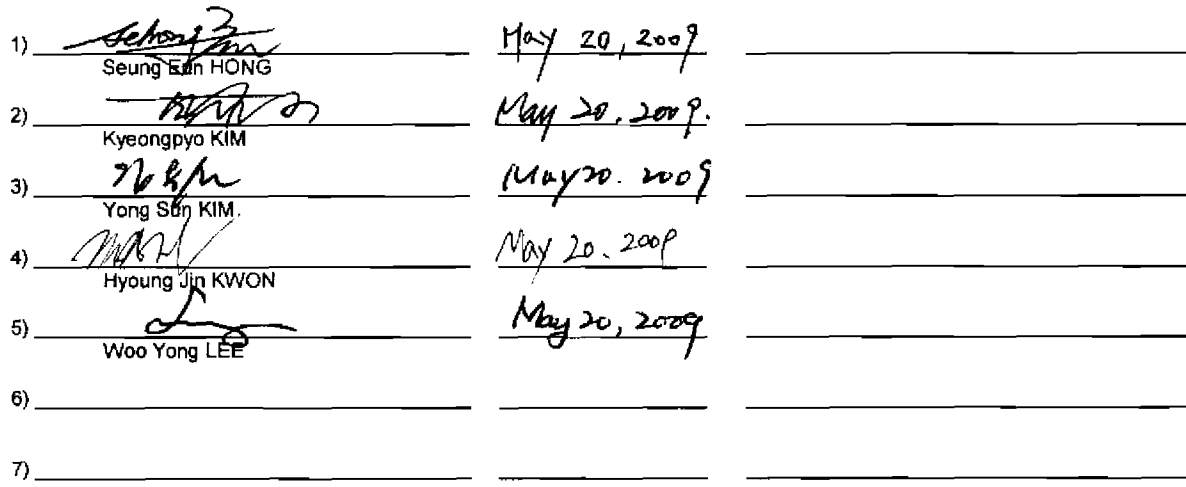 1) May 20, 2009
Seung Eun HONG
2) May 20, 2009.
Kyeongpyo KIM
3) May 20. 2009
Yong Sun KIM
4) May 20. 2009
Hyoung Jin KWON
5) May 20, 2009
Woo Yong LEE
6)
7)